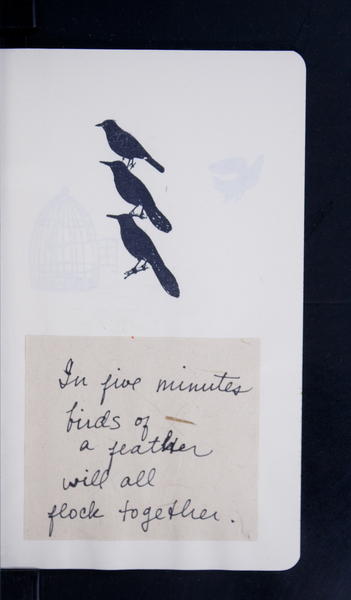 In five minutes
birds of
a feather
will all
flock together.